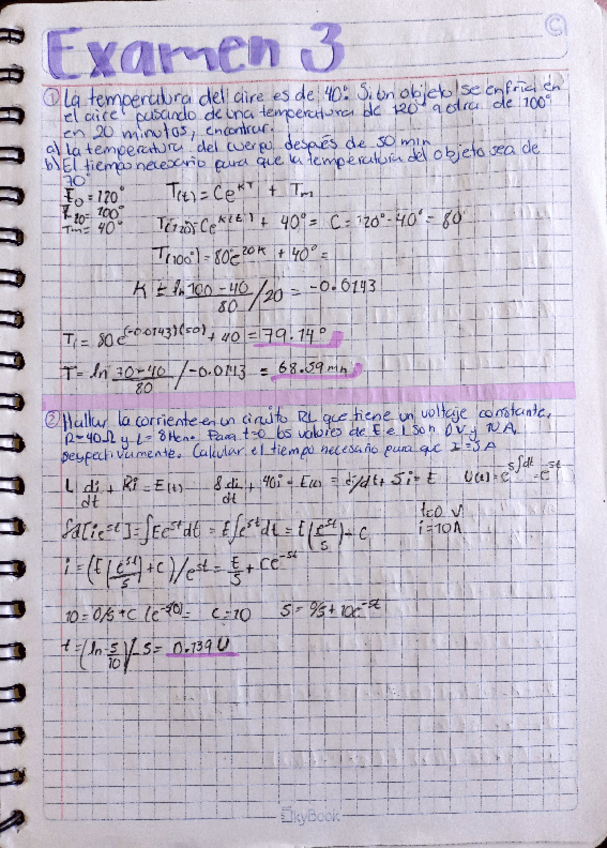 Examen 3
① La temperatura del aire es de 40°. Si un objeto se enfría en
el aire pasando de una temperatura de 120° a otra de 100°
en 20 minutos, encontrar:
a) la temperatura del cuerpo después de 50 min
b) El tiempo necesario para que la temperatura del objeto sea de
70°
t0 = 120°
t20 = 100°
Tm = 40°
T(t) = Ce^KT + Tm
T(120) = Ce^K(t) + 40° = C = 120° - 40° = 80
T(100°) = 80e^20K + 40° =
K = ln (100-40)/80 / 20 = -0.0143
T = 80e^(-0.0143)(50) + 40 = 79.14°
T = ln (70-40)/80 / -0.0143 = 68.59 mn
② Hallar la corriente en un circuito RL que tiene un voltaje constante,
R = 40Ω y L = 8 Hen. Para t=0 los valores de E e I son 0V y 10 A
respectivamente. Calcular el tiempo necesario para que I = 5 A
L di/dt + Ri = E(t) 8 di/dt + 40i = E(t) = di/dt + 5i = E U(t) = e^5∫dt = e^5t
t=0 V
i=10A
∫d[ie^5t] = ∫Ee^5t dt = E∫e^5t dt = E(e^5t/5) + C
i = (E(e^5t/5) + C)/e^5t = E/5 + Ce^-5t
10 = 0/5 + C (e^-5(0)) = C = 10 5 = 0/5 + 10e^-5t
t = (ln 5/10)/-5 = 0.139
SkyBook